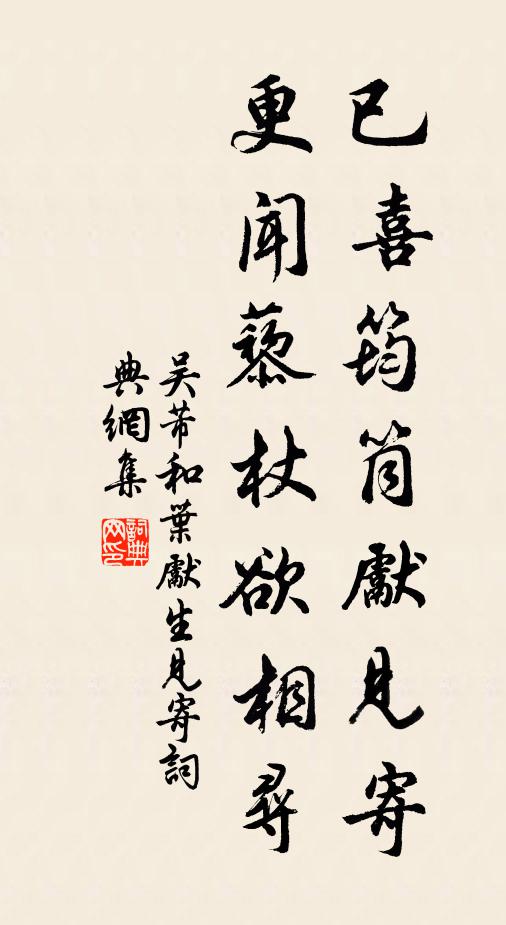 已喜筠筒獻見寄
更聞藜杖欲相尋
吳芾和葉獻生見寄詞
典網集
詞典网印